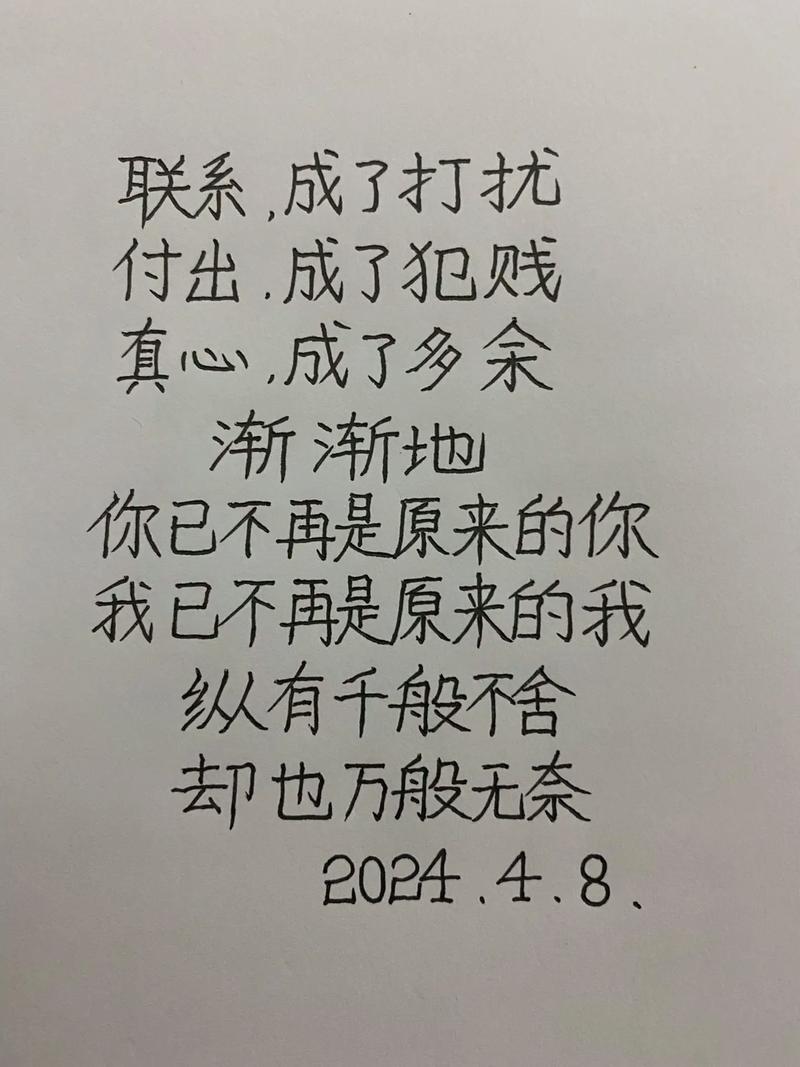 联系,成了打扰
付出.成了犯贱
真心,成了多余
渐渐地
你已不再是原来的你
我已不再是原来的我
纵有千般不舍
却也万般无奈
2024.4.8.